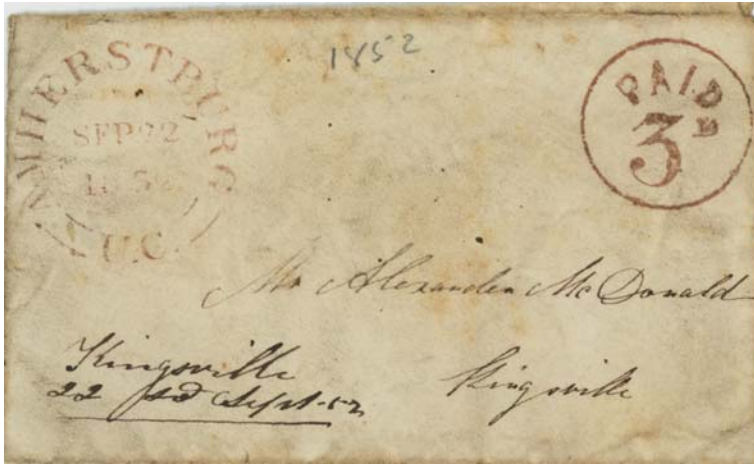 1852
AMHERSTBURG
SEP 22
1852
U.C.
PAID
3D
Mr Alexander McDonald
Kingsville
Kingsville
22 Sept-52